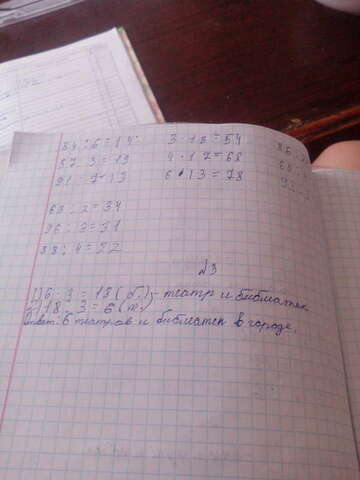 84 : 6 = 14 3 · 18 = 54 86 :
57 : 3 = 19 4 · 17 = 68 68 :
91 : 7 = 13 6 · 13 = 78 92 :
68 : 2 = 34
96 : 3 = 31
88 : 4 = 22
№3
1) 6 · 3 = 18 (б.) - театр и библиотек
2) 18 : 3 = 6 (т.
ответ: 6 театров и библиотек в городе.